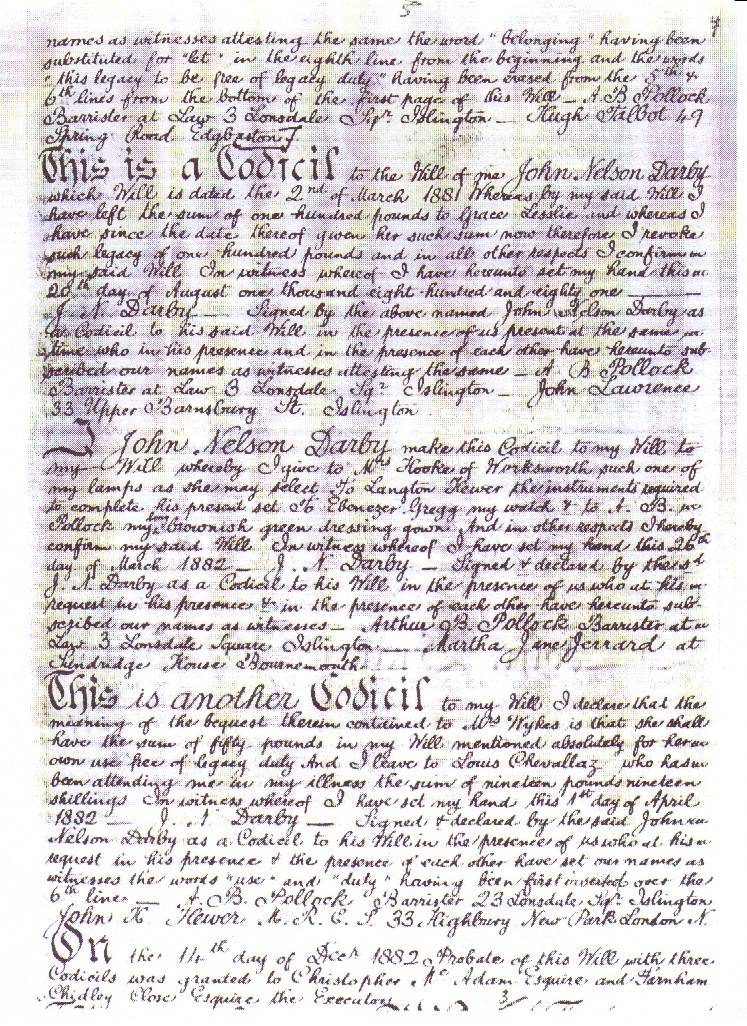 5
names as witnesses attesting the same the word "belonging" having been
substituted for "let" in the eighth line from the beginning and the words
"this legacy to be free of legacy duty" having been erased from the 5th &
6th lines from the bottom of the first page of this Will — A B Pollock
Barrister at Law 3 Lonsdale Sqr. Islington — Hugh Talbot 49
Spring Road Edgbaston
This is a Codicil to the Will of me John Nelson Darby
which Will is dated the 2nd of March 1881 Whereas by my said Will I
have left the sum of one hundred pounds to Grace Lesslie and whereas I
have since the date thereof given her such sum now therefore I revoke
such legacy of one hundred pounds and in all other respects I confirm
my said Will In witness whereof I have hereunto set my hand this
20th day of August one thousand eight hundred and eighty one —
J. N. Darby — Signed by the above named John Nelson Darby as
a Codicil to his said Will in the presence of us present at the same
time who in his presence and in the presence of each other have hereunto sub-
scribed our names as witnesses attesting the same — A. B. Pollock
Barrister at Law 3 Lonsdale Sqr. Islington — John Lawrence
33 Upper Barnsbury St. Islington
I John Nelson Darby make this Codicil to my Will to
my Will whereby I give to Mrs Hooke of Worksworth such one of
my lamps as she may select To Langton Hewer the instruments required
to complete his present set To Ebenezer Gregg my watch & to A. B.
Pollock my brownish green dressing gown And in other respects I hereby
confirm my said Will In witness whereof I have set my hand this 26th
day of March 1882 — J. N. Darby — Signed & declared by the sd
J. N. Darby as a Codicil to his Will in the presence of us who at his
request in his presence & in the presence of each other have hereunto sub-
scribed our names as witnesses — Arthur B. Pollock Barrister at
Law 3 Lonsdale Square Islington — Martha Jane Jerrard at
Sundridge House Bournemouth
This is another Codicil to my Will I declare that the
meaning of the bequest therein contained to Mrs Wykes is that she shall
have the sum of fifty pounds in my Will mentioned absolutely for her
own use free of legacy duty And I leave to Louis Chevallaz who has
been attending me in my illness the sum of nineteen pounds nineteen
shillings In witness whereof I have set my hand this 1st day of April
1882 — J. N. Darby — Signed & declared by the said John
Nelson Darby as a Codicil to his Will in the presence of us who at his
request in his presence & the presence of each other have set our names as
witnesses the words "use" and "duty" having been first inserted over the
6th line — A. B. Pollock Barrister 23 Lonsdale Sqr. Islington
John H. Hewer M. R. C. S. 33 Highbury New Park London N.
On the 14th day of Decr 1882 Probate of this Will with three
Codicils was granted to Christopher Mc Adam Esquire and Farnham
Chidley Close Esquire the Executors